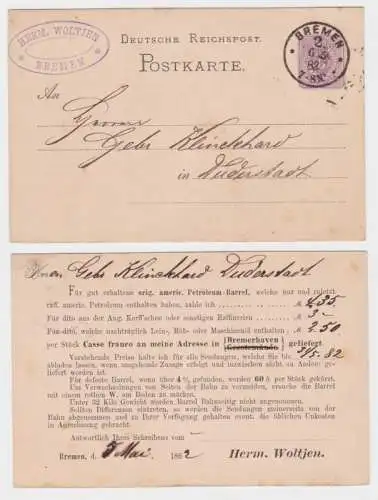 HERM. WOLTJEN
BREMEN
DEUTSCHE REICHSPOST.
POSTKARTE.
BREMEN
2.
6 5
82
7-8N.
An
Herren
Gebr Klinckhard
in Duderstadt
Herren Gebr Klinckhard Duderstadt
Für gut erhaltene orig. americ. Petroleum-Barrel, welche nur und zuletzt
raff. americ. Petroleum enthalten haben, zahle ich M. 4,35
Für dito aus der Aug. Korff'schen oder sonstigen Raffinerien M. 3.-
Für dito, welche nachträglich Lein-, Rüb- oder Maschinenöl enthalten M. 2.50
per Stück Casse franco an meine Adresse in Bremerhaven Geestemünde geliefert 31/5. 82
Vorstehende Preise halte ich für alle Sendungen, welche Sie bis
abladen lassen, wenn umgehende Zusage erfolgt und inzwischen nicht zu Andere ge-
liefert worden ist.
Für defecte Barrel, wenn über 4% gefunden, werden 60 ₰ per Stück gekürzt.
Um Verwechselungen von Seiten der Bahn zu vermeiden, ersuche die Barrel mit
einem rothen W. am Boden zu marken.
Unter 32 Kilo Gewicht werden Barrel Bahnseitig nicht angenommen.
Sollten Differenzen eintreten, so werden die Sendungen meinerseits von der
Bahn angenommen und zu Ihrer Verfügung gehalten event. die üblichen Unkosten
in Anrechnung gebracht.
Antwortlich Ihres Schreibens vom —
Bremen, d. 5 Mai 1882 Herm. Woltjen.